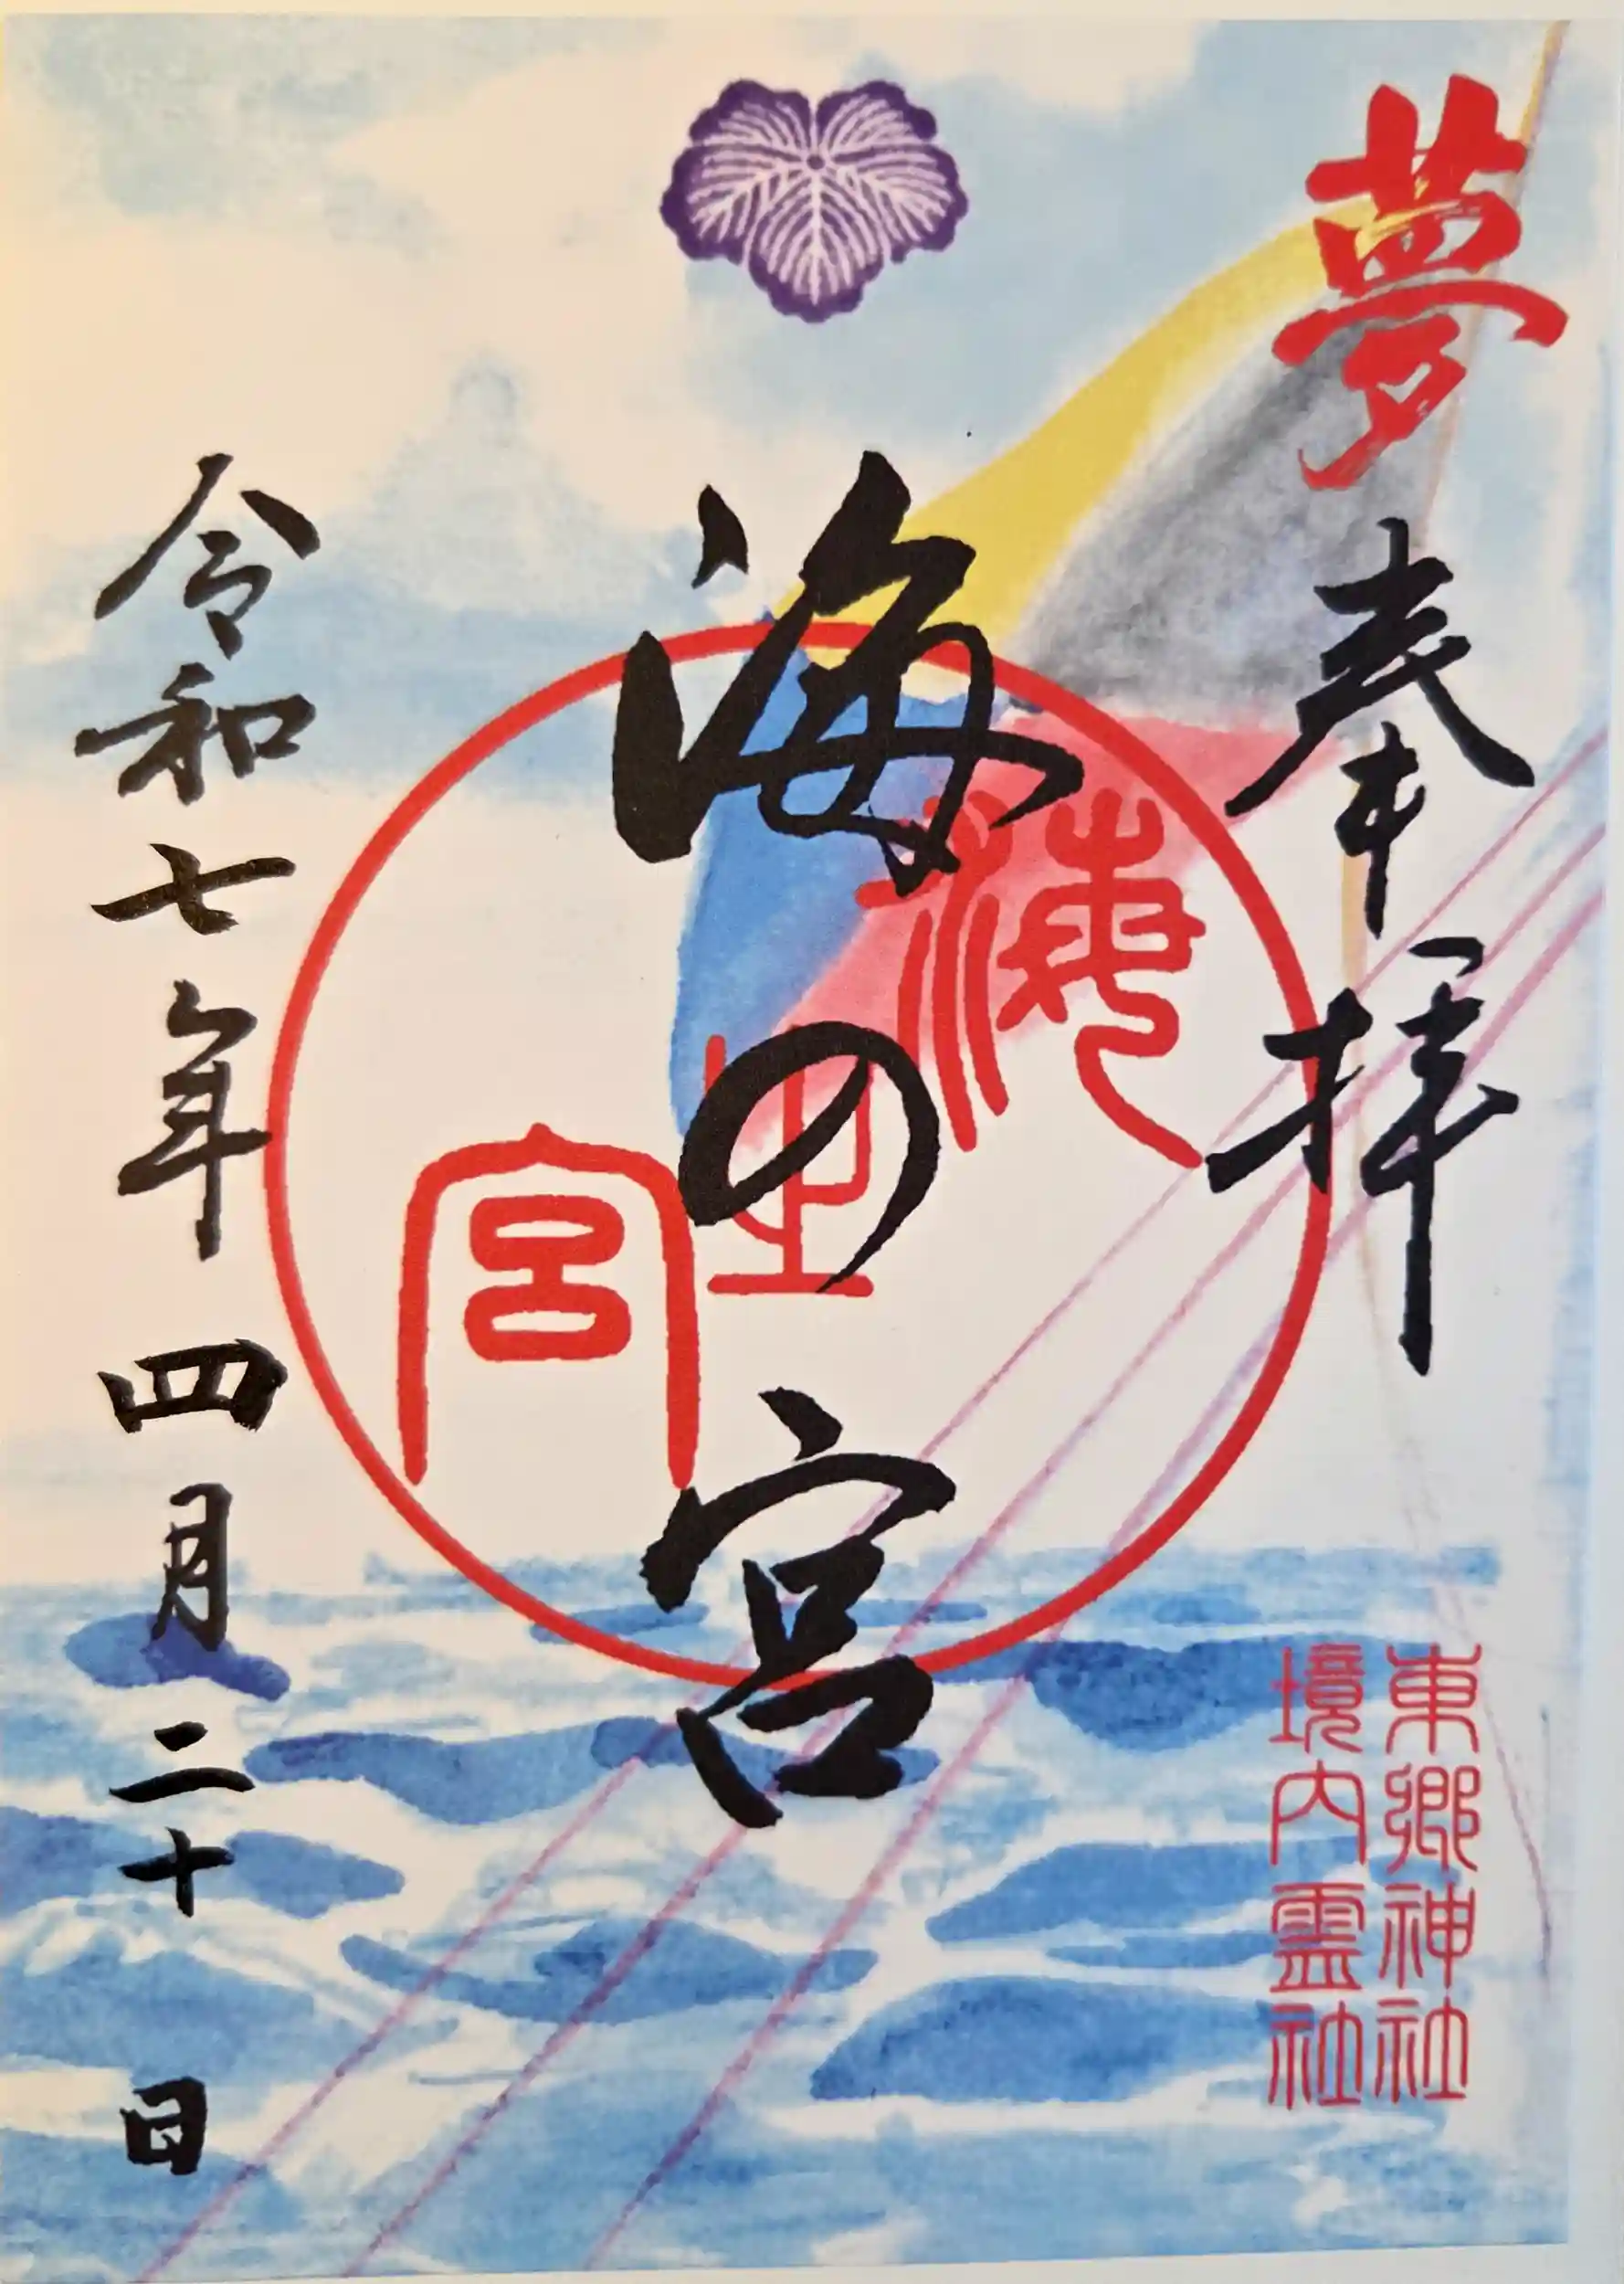 夢
奉拝
東郷神社
境内霊社
海の宮
海之宮
令和七年四月二十日